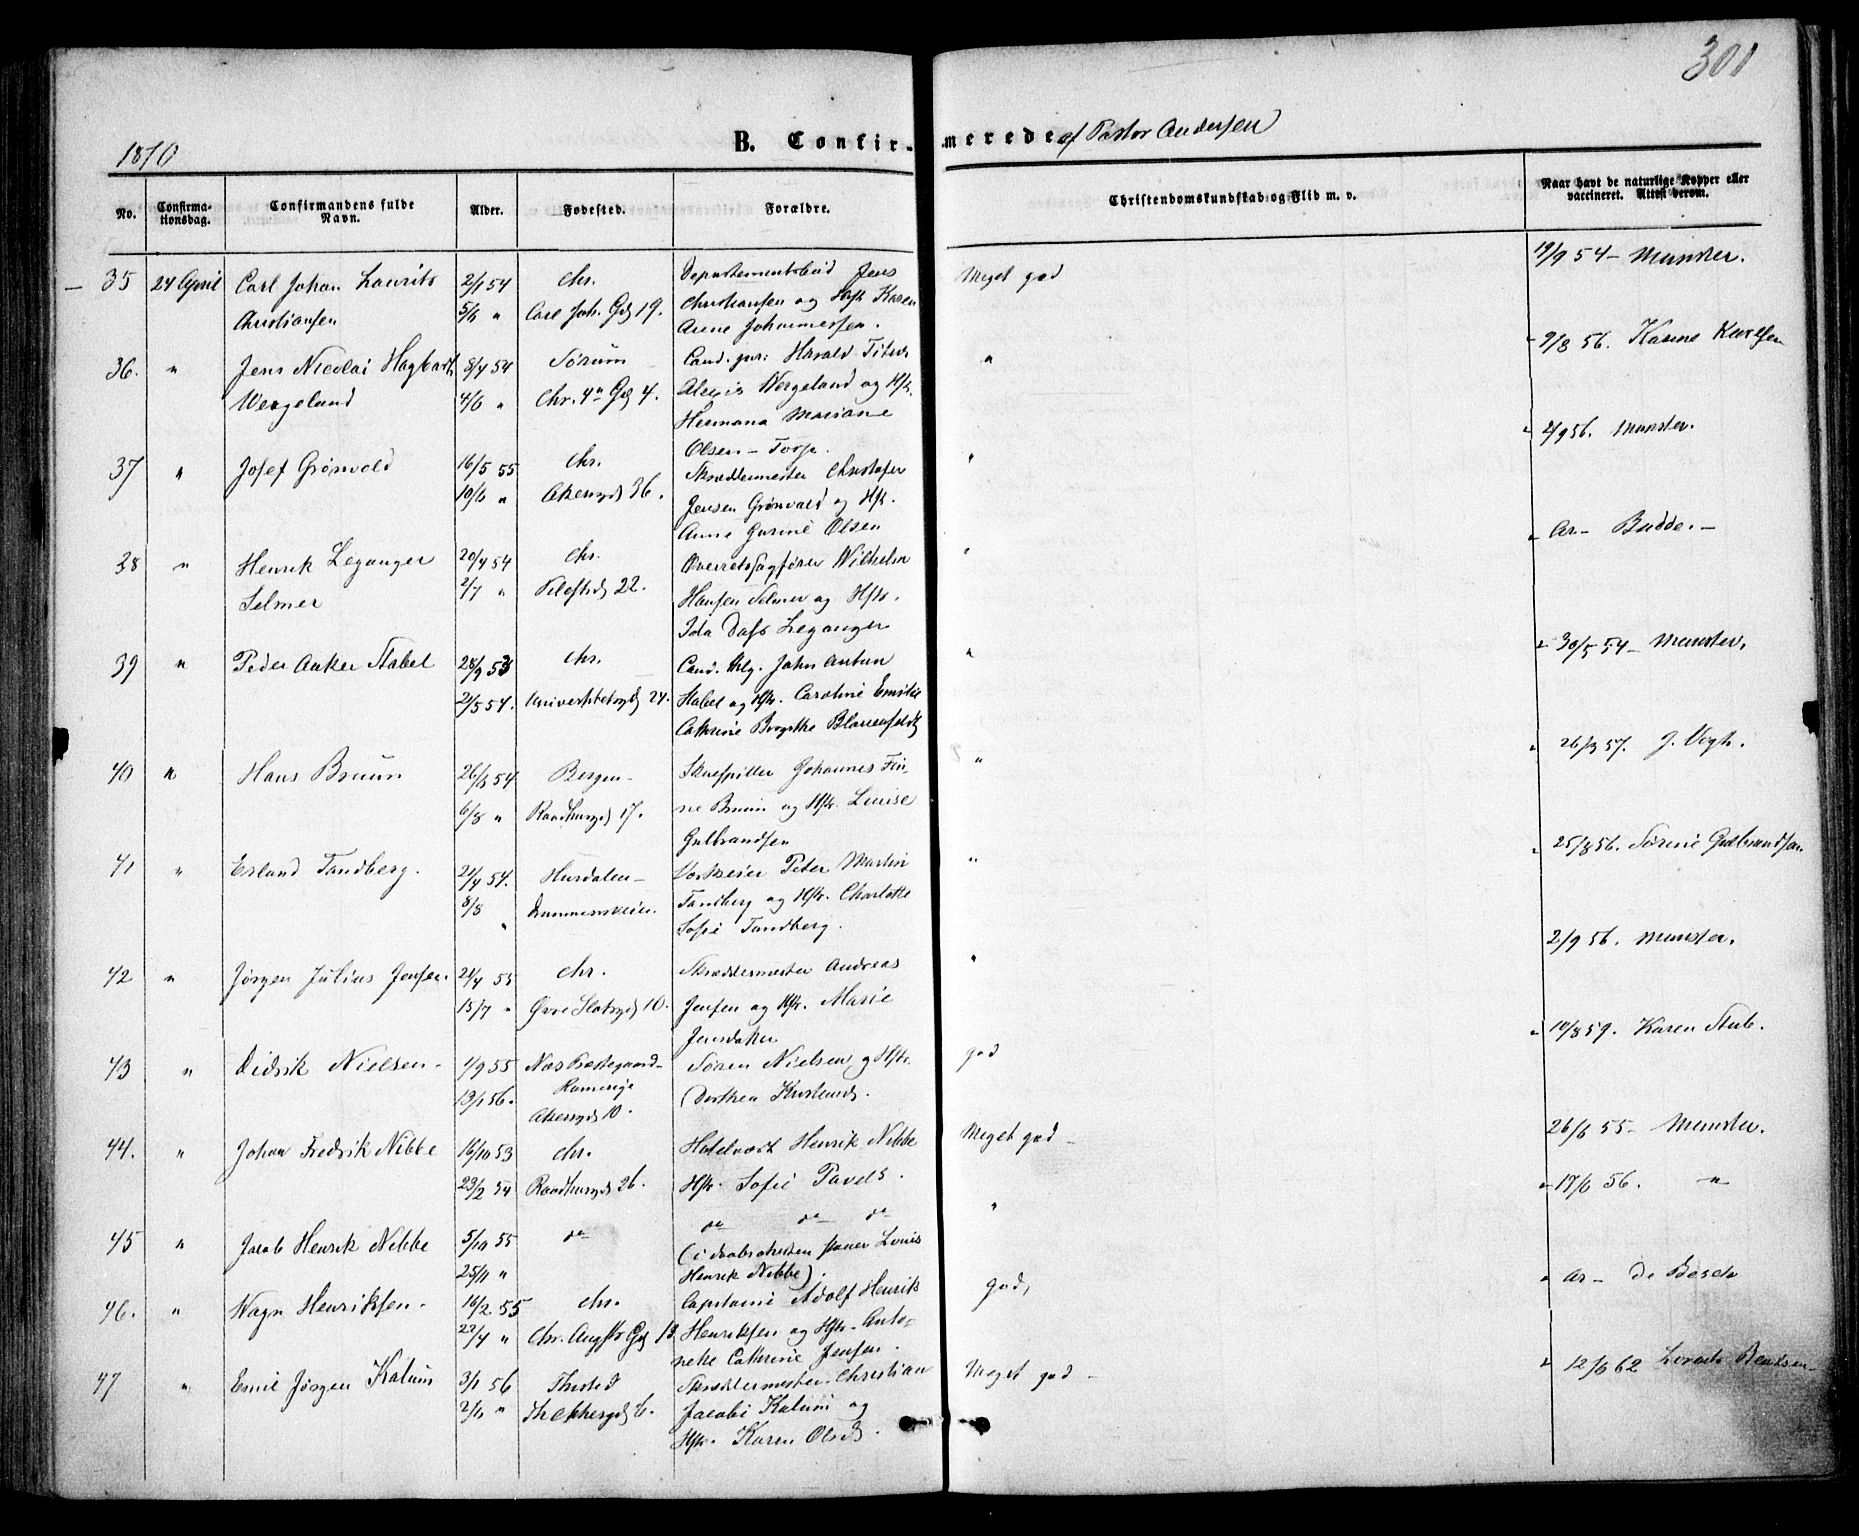 301
1870
B. Confirmerede af Pastor Andersen
No.
Confirmationsdag.
Confirmandens fulde Navn.
Alder.
Fødested.
Forældre.
Christendomskundskab og Flid m. v.
Naar havt de naturlige Kopper eller vaccineret. Attest derom.
35 24 April Carl Johan Laurits 2/1 54 Chr. Departementsbud Jens Meget god 19/9 54 - Munster.
Christiansen 5/6 " Carl Joh. Gd 19. Christiansen og Hst. Karen
Arene Johannessen.
36. " Jens Nicolai Hagbarth 8/4 54 Sørum Cand. jur: Harald Titus " 9/8 56.
Wergeland 4/6 " Chr. 4de Gd 4. Alexis Wergeland og Hst.
Hermana Mariane
Olsen - Torp.
37 " Josef Grønvold 16/5 55 Chr. Skræddermester Christofer " 2/9 56. Munster.
10/6 " Akersgd 36. Jensen Grønvald og Hst.
Anne Gurine Olsen
38 " Henrik Leganger 20/4 54 Chr. Overretssagfører Wilhelm " Ar - Budde. -
Selmer 2/7 " 22. Hansen Selmer og Hst.
Ida Leganger
39 " Peder Anker Stabel 28/9 53 Chr. Cand. John Anton " 30/5 54 - Munster.
21/5 54. Universitetsgd 24. Stabel og Hst. Caroline Emilie
Cathrine Birgithe
40 " Hans Bruun 26/3 54 Bergen - Skuespiller Johannes Fin- " 26/3 57. J. Vogt.
6/8 " Raadhusgd 17. ne Bruun og Hst. Louise
Gulbrandsen
41 " Erland Tandberg. 21/4 54. Hurdalen - Peter Martin " 25/8 56. Sørine Gulbrandsen
8/8 " Drammensveien. Tandberg og Hst. Charlotte
Sofie Tandberg.
42 " Jørgen Julius Jensen. 21/4 55 Chr. Skræddermester Andreas " 2/9 56. Munster.
15/7 " Øvre Slotsgd 10. Jensen og Hst. Marie
43 " Didrik Nielsen - 1/9 55 Næs Søren Nielsen og Hst. god 10/8 59. Karen Stub.
13/1 56. Romerige Dorthea
Akersgd 10.
44. " Johan Fredrik Nibbe 16/10 53 Chr. Hotelvært Henrik Nibbe Meget god - 26/6 55 - Munster.
23/2 54 Raadhusgd 26. Hst. Sofie Pavels.
45 " Jacob Henrik Nibbe 5/10 55 do do do do " 17/6 56. "
25/11 " (i Daabsattesten staaer Louis
Henrik Nibbe).
46. " Wagn Henriksen. 16/2 55 Chr. Capitaine Adolf Henrik god, Ar - De Besche
22/4 " Chr. Augsts Gd 13 Henriksen og Hst. Anto-
nette Cathrine Jensen.
47 " Emil Jørgen Kalum 3/1 56 Thisted Skræddermester Christian Meget god - 12/6 62
2/11 " 6. Jacobi Kalum og
Hst. Karen Olsd.